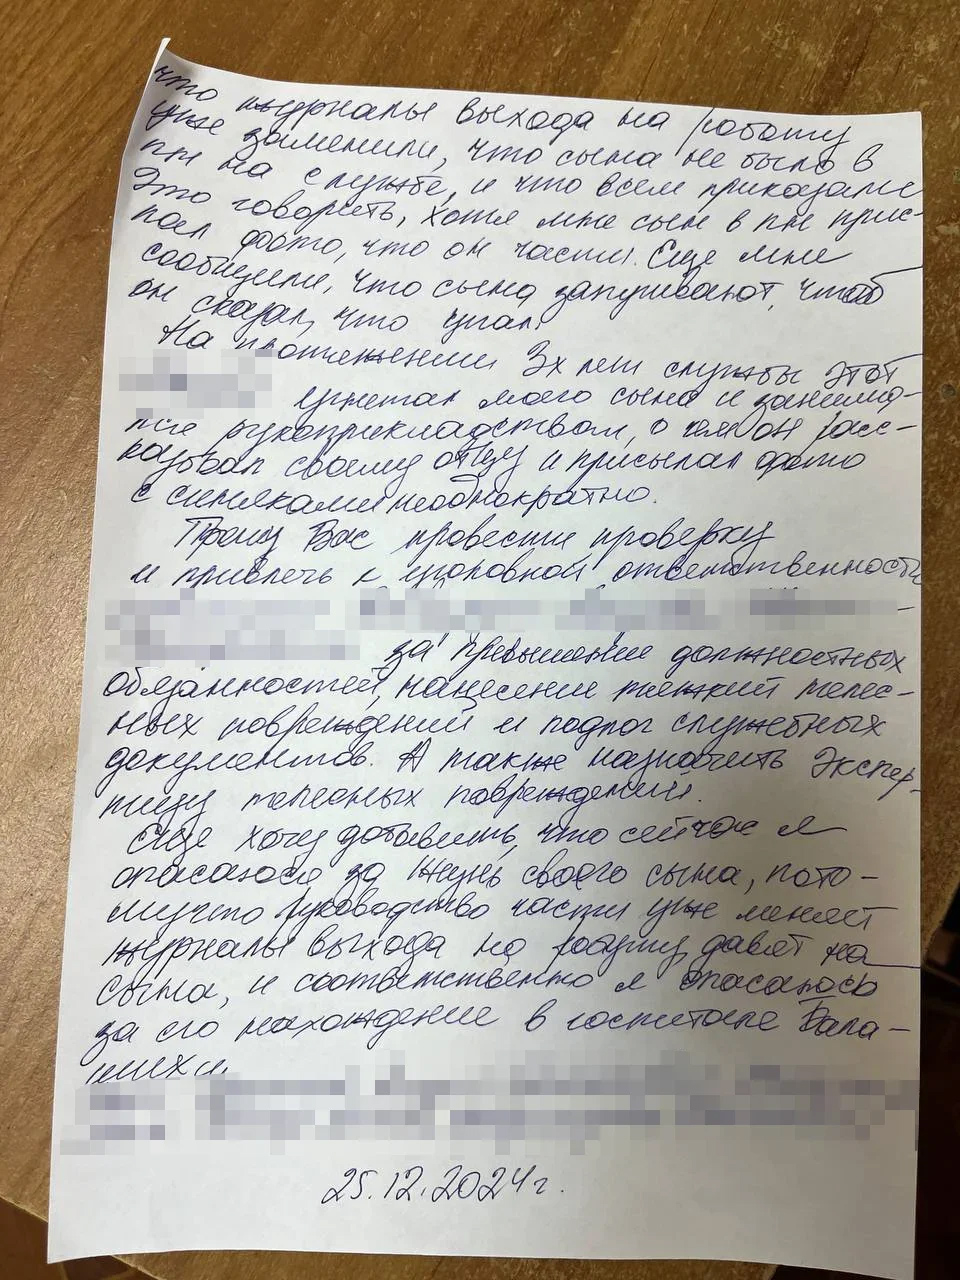 что журналы выхода на работу
уже заменили, что сына не было в
пн на службе, и что всем приказали
это говорить, хотя мне сын в пн прис-
лал фото, что он части. Еще мне
сообщили, что сына запугивают, чтоб
он сказал, что упал.
На протяжении 3х лет службы этот
угнетал моего сына и занима-
лся рукоприкладством, о чем он расс-
казывал своему отцу и присылал фото
с синяками неоднократно.
Прошу Вас провести проверку
и привлечь к уголовной ответственности
за превышение должностных
обязанностей, нанесение тяжкий телес-
ных повреждений и подлог служебных
документов. А также назначить экспер-
тизу телесных повреждений.
Еще хочу добавить, что сейчас я
опасаюсь за жизнь своего сына, пото-
мучто руководство части уже меняет
журналы выхода на работу, давят на
сына, и соответственно я опасаюсь
за его нахождение в госпитале Бала-
шихи.
25.12.2024г.